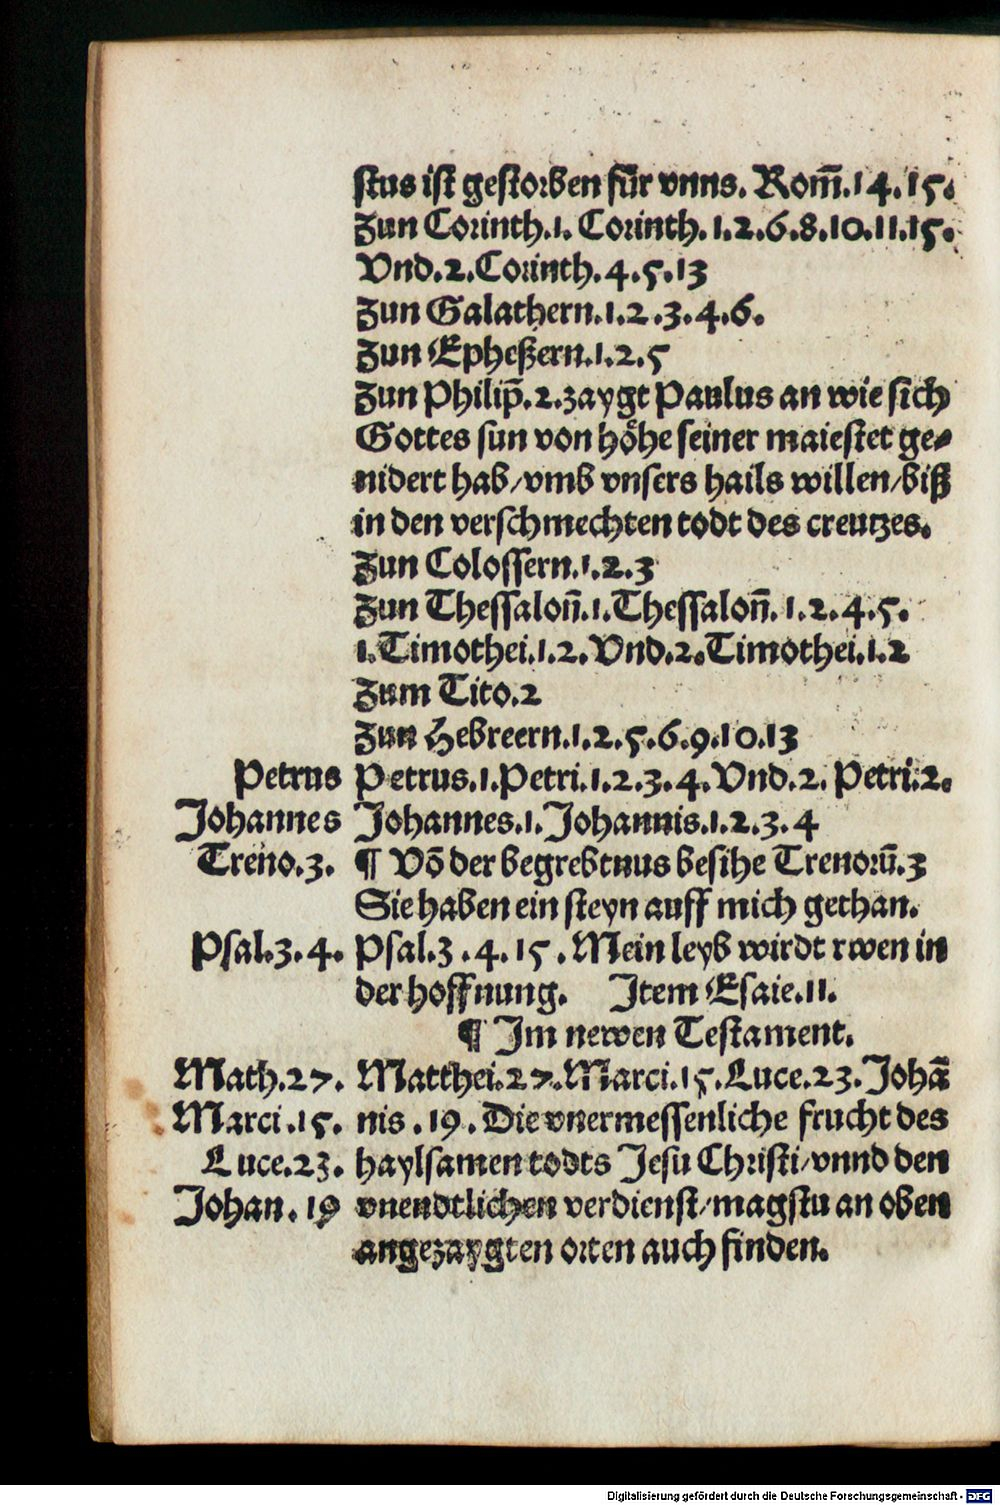 stus ist gestorben für vnns. Rom̃.14.15.
Zun Corinth.1. Corinth.1.2.6.8.10.11.15.
Vnd.2.Corinth.4.5.13
Zun Galathern.1.2.3.4.6.
Zun Epheßern.1.2.5
Zun Philip̃.2.zaygt Paulus an wie sich
Gottes sun von höhe seiner maiestet ge⸗
nidert hab/vmb vnsers hails willen/biß
in den verschmechten todt des creutzes.
Zun Colossern.1.2.3
Zun Thessaloñ.1.Thessaloñ.1.2.4.5.
1.Timothei.1.2.Vnd.2.Timothei.1.2
Zum Tito.2
Zun Hebreern.1.2.5.6.9.10.13
Petrus Petrus.1.Petri.1.2.3.4.Vnd.2. Petri.2.
Johannes Johannes.1.Johannis.1.2.3.4
Treno.3. ¶ Võ der begrebtnus besihe Trenorũ.3
Sie haben ein steyn auff mich gethan.
Psal.3.4. Psal.3.4.15. Mein leyb wirdt rwen in
der hoffnung. Item Esaie.11.
¶ Im newen Testament.
Math.27. Matthei.27.Marci.15.Luce.23.Johã
Marci.15. nis.19. Die vnermessenliche frucht des
Luce.23. haylsamen todts Jesu Christi/vnnd den
Johan.19 vnendtlichen verdienst/magstu an oben
angezaygten orten auch finden.
Digitalisierung gefördert durch die Deutsche Forschungsgemeinschaft - DFG